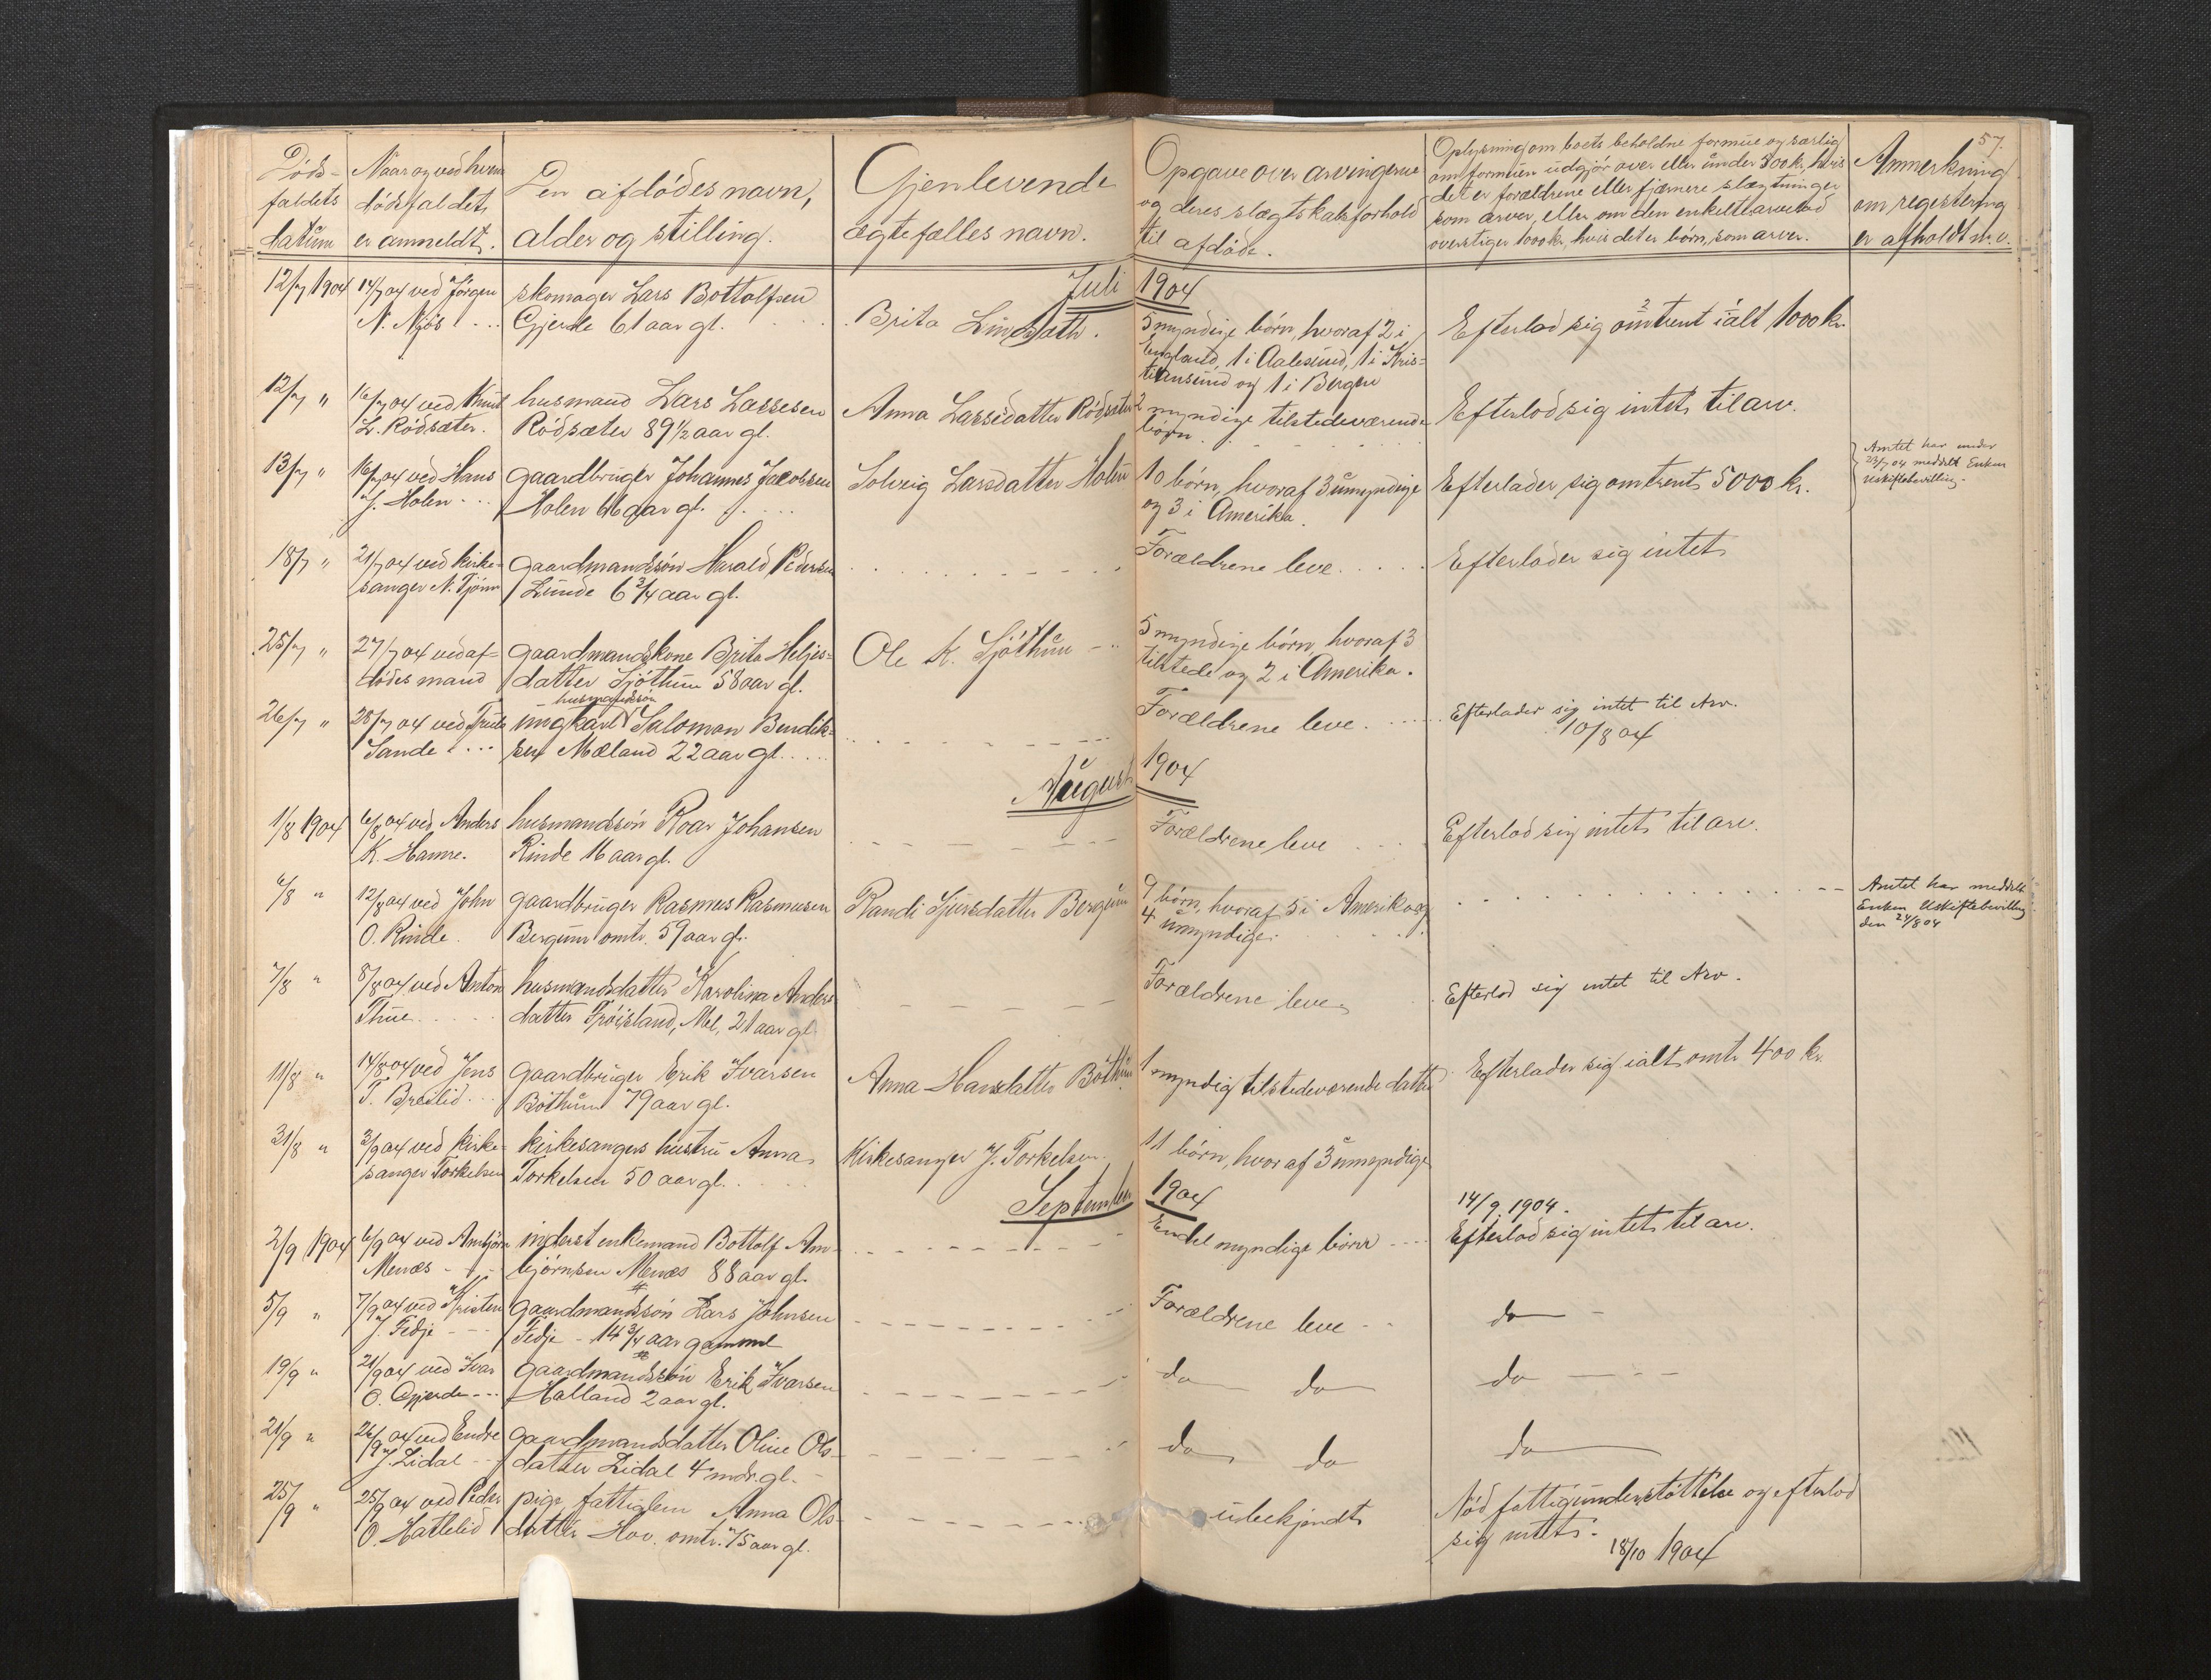 57.
Døds-
faldets
datum
Naar og ved hvem
dødsfaldet
er anmeldt.
Den afdødes navn,
alder og stilling.
Gjenlevende
ægtefælles navn.
Opgave over arvingerne
og deres slægtskabsforhold
til afdøde.
Oplysning om boets beholdne formue og særlig
om formuen udgjør over eller under 300 kr, hvis
det er forældrene eller fjærnere slægtninger
som arver, eller om den enkeltearvelod
overstiger 1000 kr, hvis det er børn, som arver.
Anmerkning
om registering
er afholdt m.v.
Juli 1904
12/7 1904
14/7 04 ved Jørgen
N. Njøs
skomager Lars Bottolfsen
Gjerde 61 aar gl.
Brita Lindsdatr.
5 myndige børn, hvoraf 2 i
England, 1 i Aalesund, 1 i Kris-
tiansund og 1 i Bergen
Efterlod sig omtrent ialt 1000 kr.
12/7 "
16/7 04 ved Knut
L. Rødsæter.
husmand Lars Lassesen
Rødsæter 89 1/2 aar gl.
Anna Lassedatter Rødsæter
2 myndige tilstedeværende
børn.
Efterlod sig intet til arv.
13/7 "
16/7 04 ved Hans
J. Holen
gaardbruger Johannes Jacobsen
Holen 66 aar gl.
Solveig Larsdatter Holen
10 børn, hvoraf 3 umyndige
og 3 i Amerika.
Efterlader sig omtrent 5000 kr.
Amtet har under
23/7 04 meddelt Enken
Uskiftebevilling.
18/7 "
21/7 04 ved kirke-
sanger N. Tjønn
gaardmandssøn Harald Pedersen
Lunde 6 3/4 aar gl.
Forældrene leve
Efterlader sig intet
25/7 "
27/7 04 ved af-
dødes mand
gaardmandskone Brita Heljes-
datter Sjøthun 58 aar gl.
Ole K. Sjøthun
5 myndige børn, hvoraf 3
tilstede og 2 i Amerika.
26/7 "
28/7 04 ved Truls
Sande
husmandssøn
ungkarl Salomon Bendik-
sen Mæland 22 aar gl.
Forældrene leve.
Efterlader sig intet til Arv.
10/8 04
August 1904
1/8 1904
6/8 04 ved Anders
K. Hamre.
husmandssøn Roar Johansen
Rinde 16 aar gl.
Forældrene leve
Efterlod sig intet til arv.
6/8 "
12/8 04 ved John
O. Rinde.
gaardbruger Rasmus Rasmusen
Bergum omtr. 57 aar gl.
Randi Sjursdatter Bergum
9 børn, hvoraf 5 i Amerika og
4 umyndige.
Amtet har meddelt
Enken Uskiftebevilling
den 24/8 04
7/8 "
8/8 04 ved Anton
Thue
husmandsdatter Karolina Anders
datter Frøisland, Mel, 21 aar gl.
Forældrene leve
Efterlod sig intet til Arv.
11/8 "
14/8 04 ved Jens
T. Breilid
gaardbruger Erik Ivarsen
Bøthun 79 aar gl.
Anna Hansdatter Bøthun
1 myndig tilstedeværende datter
Efterlader sig ialt omtr 400 kr.
31/8 "
3/9 04 ved kirke-
sanger Torkelsen
kirkesangers hustru Anna
Torkelsen 50 aar gl.
Kirkesanger J. Torkelsen.
11 børn, hvoraf 3 umyndige
September 1904
2/9 1904
6/9 04 ved Ambjørn
Menæs
inderst enkemand Bottolf Am-
bjørnsen Menæs 88 aar gl.
Endel myndige børn
14/9 1904.
Efterlod sig intet til arv.
5/9 "
7/9 04 ved Kristen
J. Fedje
gaardmandssøn Lars Johnsen
Fedje - 14 3/4 aar gammel
Forældrene leve
do
19/9 "
21/9 04 ved Ivar
O. Gjerde
gaardmandssøn Erik Ivarsen
Halland 2 aar gl.
do do
do
21/9 "
26/9 04 ved Endre
J. Lidal
gaardmandsdatter Oline Ols-
datter Lidal 4 mdr. gl.
do do
do
25/9 "
25/9 04 ved Peder
O. Hattelid
pige, fattiglem Anna Ols-
datter Hov. omtr. 75 aar gl.
ubekjendt
Nød fattigunderstøttelse og efterlod
sig intet.
18/10 1904